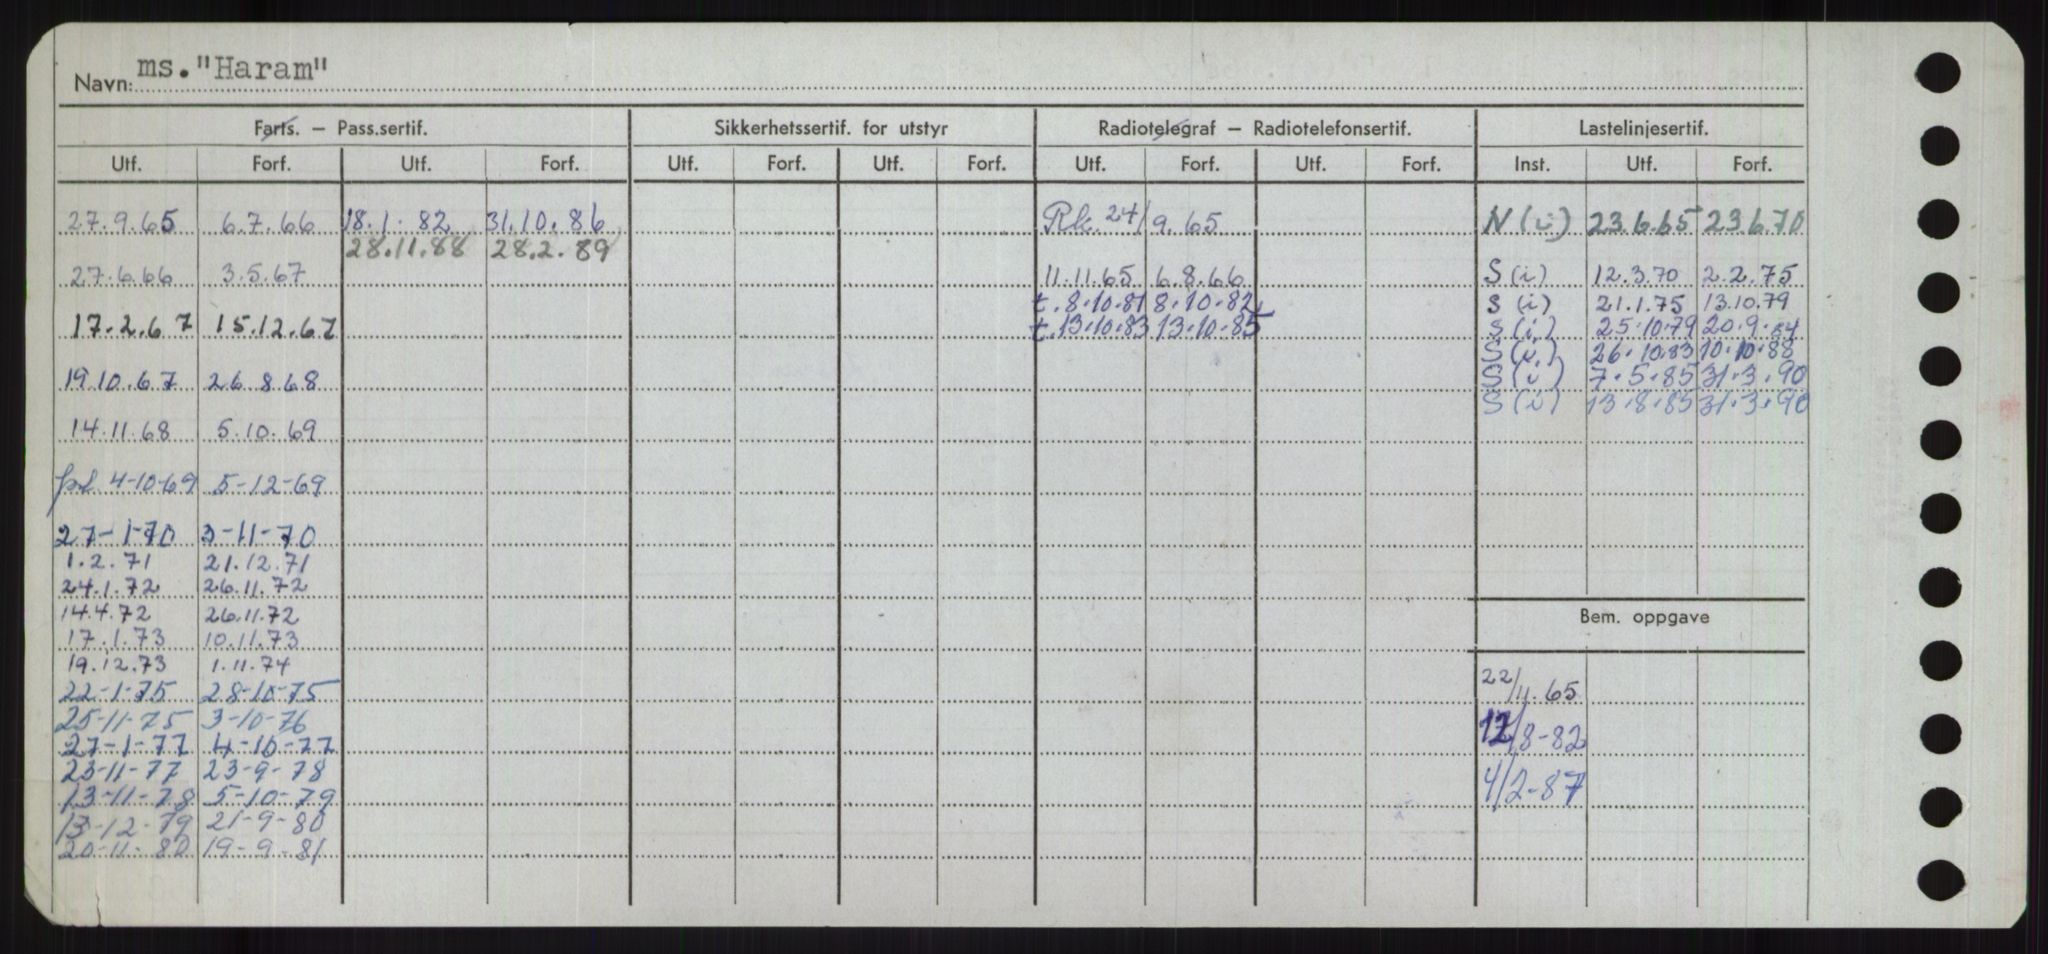 Navn: ms. "Haram"
Farts. – Pass.sertif. Sikkerhetssertif. for utstyr Radiotelegraf – Radiotelefonsertif. Lastelinjesertif.
Utf. Forf. Utf. Forf. Utf. Forf. Utf. Forf. Utf. Forf. Utf. Forf. Inst. Utf. Forf.
27.9.65 6.7.66 18.1.82 31.10.86 Rk. 24/9.65 N (i) 23.6.65 23.6.70
28.11.88 28.2.89
27.6.66 3.5.67 11.11.65 6.8.66 S (i) 12.3.70 2.2.75
t. 8.10.81 8.10.82 S (i) 21.1.75 13.10.79
17.2.67 15.12.67 t. 13.10.83 13.10.85 S (i) 25.10.79 20.9.84
S (i) 26.10.83 10.10.88
19.10.67 26.8.68 S (i) 7.5.85 31.3.90
S (i) 13.8.85 31.3.90
14.11.68 5.10.69
4-10-69 5-12-69
27-1-70 3-11-70
1.2.71 21.12.71
24.1.72 26.11.72
14.4.72 26.11.72
Bem. oppgave
17.1.73 10.11.73
19.12.73 1.11.74
22-1-75 28-10-75 22/11.65
25-11-75 3-10-76
27-1-77 4-10-77 12/8-82
23-11-77 23-9-78
13-11-78 5-10-79 4/2-87
13-12-79 21-9-80
20-11-80 19-9-81